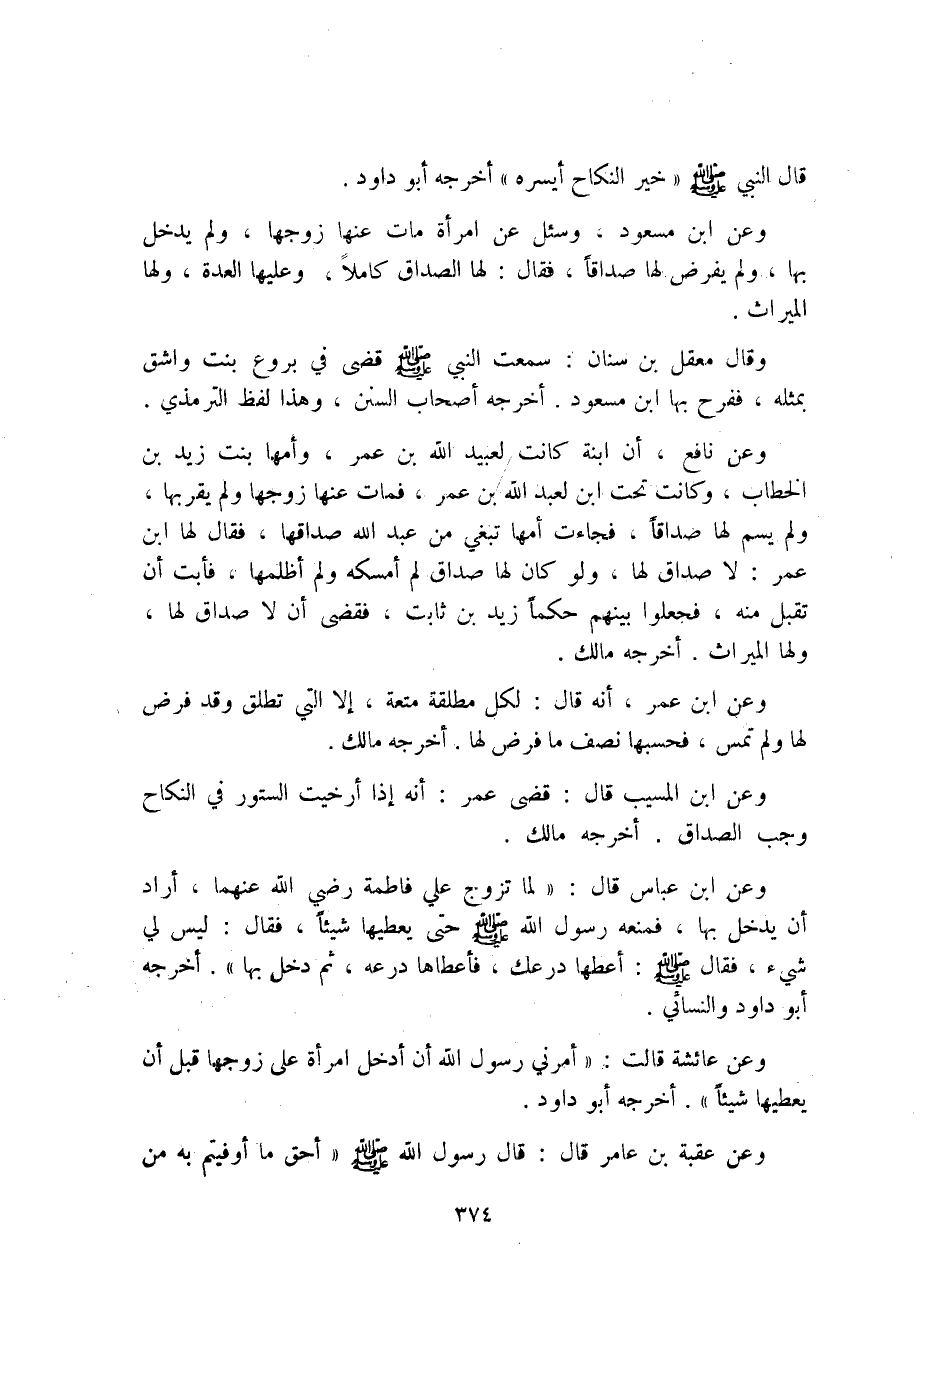 قال النبي ﷺ « خير النكاح أيسره » أخرجه أبو داود .
وعن ابن مسعود ، وسئل عن امرأة مات عنها زوجها ، ولم يدخل
بها ، ولم يفرض لها صداقاً ، فقال : لها الصداق كاملاً ، وعليها العدة ، ولها
الميراث .
وقال معقل بن سنان : سمعت النبي ﷺ قضى في بروع بنت واشق
بمثله ، ففرح بها ابن مسعود . أخرجه أصحاب السنن ، وهذا لفظ الترمذي .
وعن نافع ، أن ابنة كانت لعبيد الله بن عمر ، وأمها بنت زيد بن
الخطاب ، وكانت تحت ابن لعبد الله بن عمر ، فمات عنها زوجها ولم يقربها ،
ولم يسم لها صداقاً ، فجاءت أمها تبغي من عبد الله صداقها ، فقال لها ابن
عمر : لا صداق لها ، ولو كان لها صداق لم أمسكه ولم أظلمها ، فأبت أن
تقبل منه ، فجعلوا بينهم حكماً زيد بن ثابت ، فقضى أن لا صداق لها ،
ولها الميراث . أخرجه مالك .
وعن ابن عمر ، أنه قال : لكل مطلقة متعة ، إلا التي تطلق وقد فرض
لها ولم تمس ، فحسبها نصف ما فرض لها . أخرجه مالك .
وعن ابن المسيب قال : قضى عمر : أنه إذا أرخيت الستور في النكاح
وجب الصداق . أخرجه مالك .
وعن ابن عباس قال : « لما تزوج علي فاطمة رضي الله عنهما ، أراد
أن يدخل بها ، فمنعه رسول الله ﷺ حتى يعطيها شيئاً ، فقال : ليس لي
شيء ، فقال ﷺ : أعطها درعك ، فأعطاها درعه ، ثم دخل بها » . أخرجه
أبو داود والنسائي .
وعن عائشة قالت : « أمرني رسول الله أن أدخل امرأة على زوجها قبل أن
يعطيها شيئاً » . أخرجه أبو داود .
وعن عقبة بن عامر قال : قال رسول الله ﷺ « أحق ما أوفيتم به من
٣٧٤